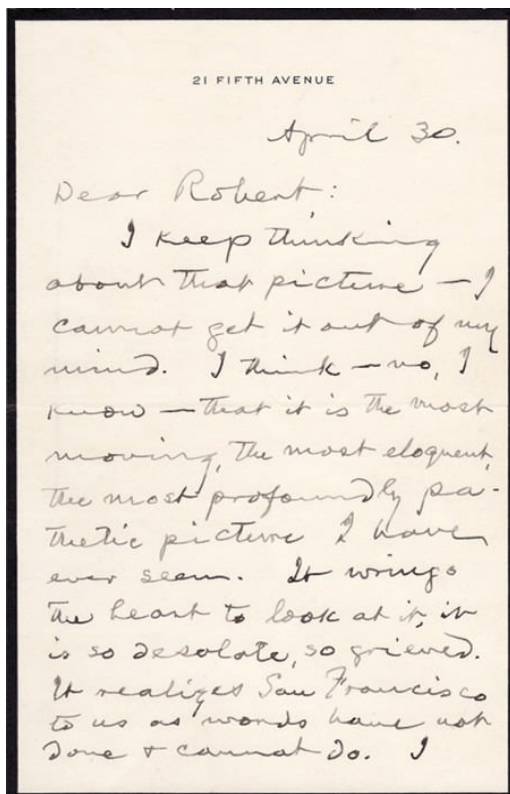 21 FIFTH AVENUE
April 30.
Dear Robert:
I keep thinking
about that picture — I
cannot get it out of my
mind. I think — no, I
know — that it is the most
moving, the most eloquent,
the most profoundly pa-
thetic picture I have
ever seen. It wrings
the heart to look at it, it
is so desolate, so grieved.
It realizes San Francisco
to us as words have not
done & cannot do. I